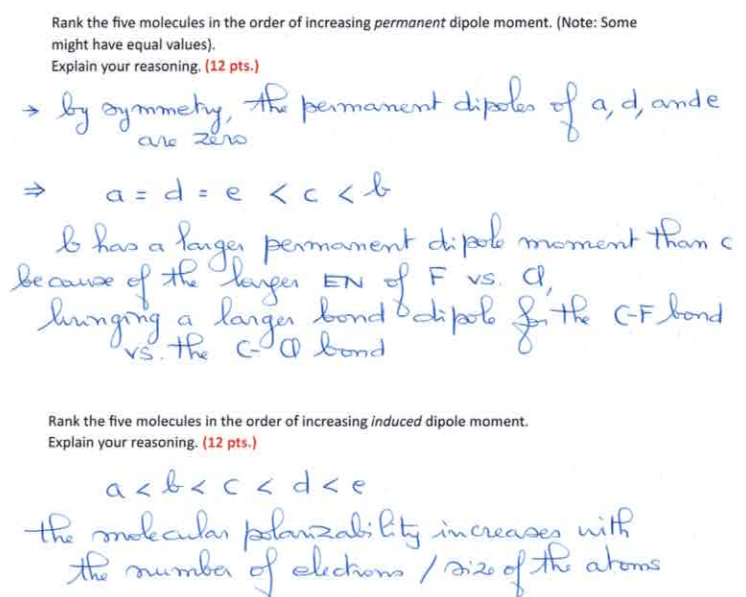 Rank the five molecules in the order of increasing permanent dipole moment. (Note: Some
might have equal values).
Explain your reasoning. (12 pts.)
→ by symmetry, the permanent dipoles of a, d, and e
are zero
⇒ a = d = e < c < b
b has a larger permanent dipole moment than c
because of the larger EN of F vs. Cl,
bringing a larger bond dipole for the C-F bond
vs. the C-Cl bond
Rank the five molecules in the order of increasing induced dipole moment.
Explain your reasoning. (12 pts.)
a < b < c < d < e
the molecular polarizability increases with
the number of electrons / size of the atoms